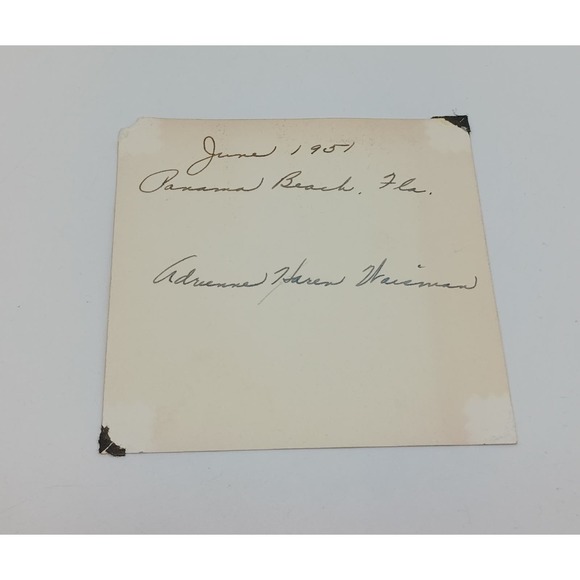 June 1951
Panama Beach, Fla.
Adrienne Haren Waisman